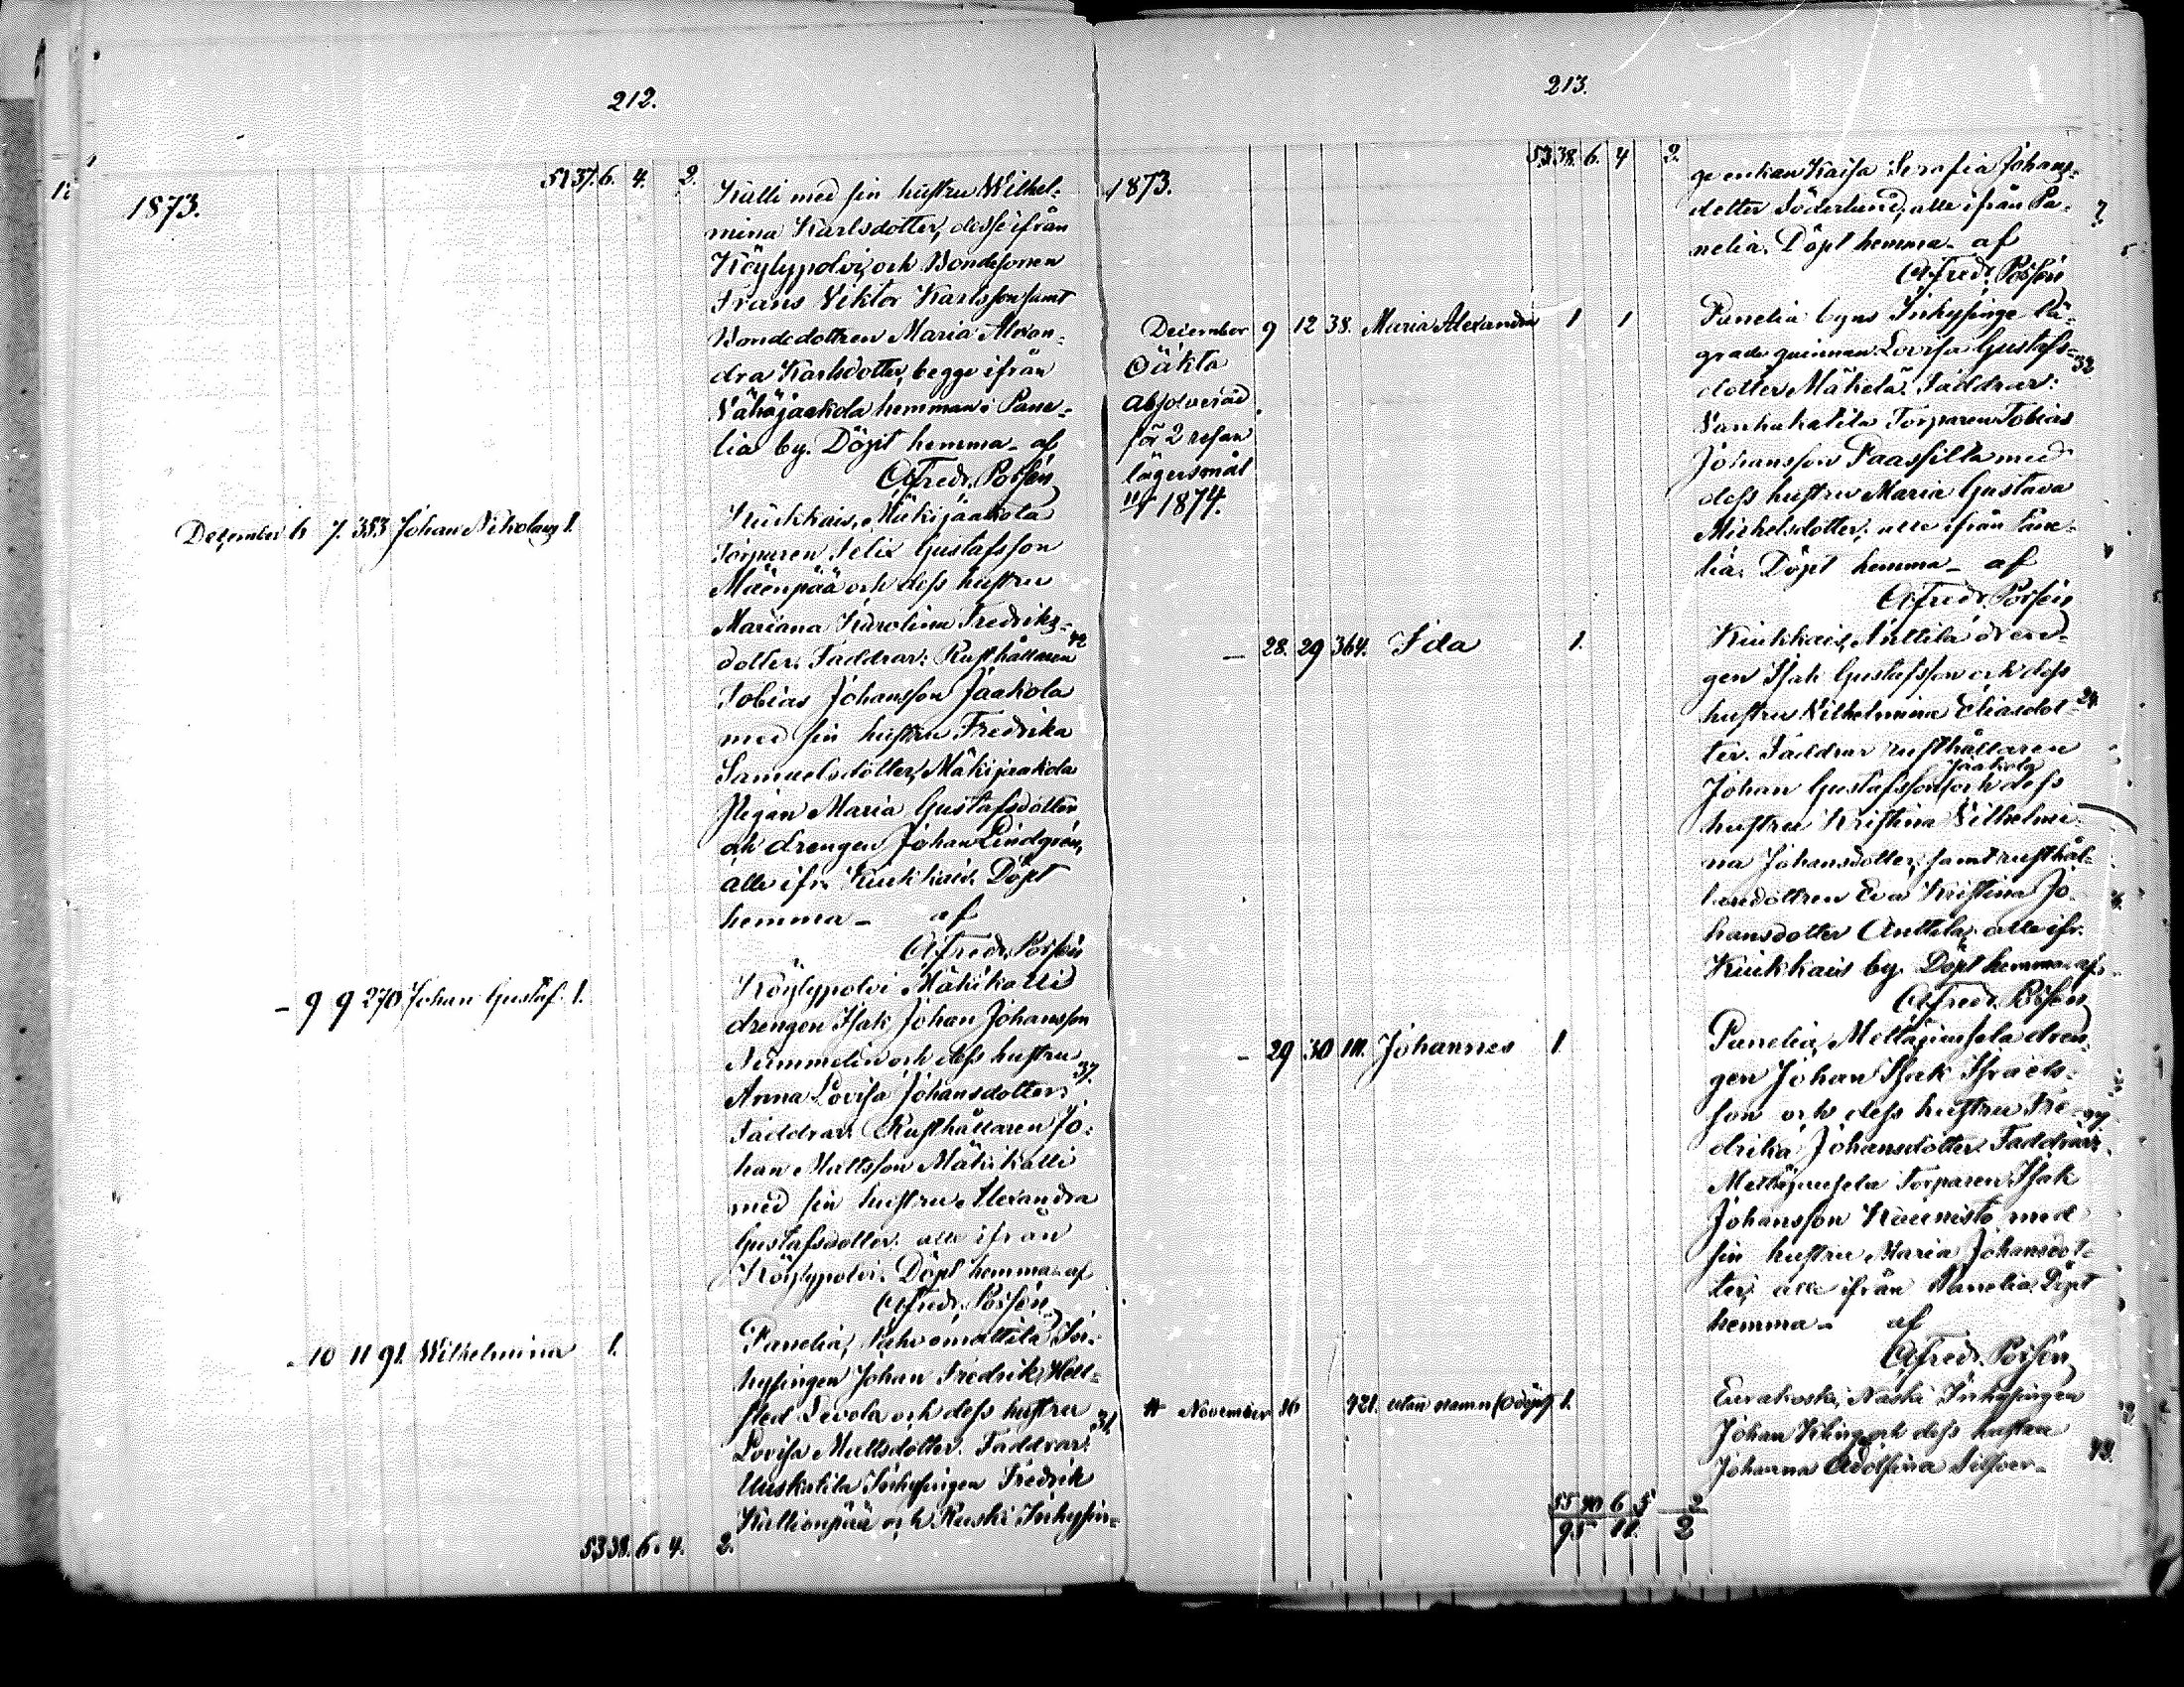 212.
51 37. 6. 4. 2.
1873.
Kalli med sin hustru Wilhel-
mina Karlsdotter, desse ifrån
Köylypolvi, och Bondesonen
Frans Viktor Karlsson samt
Bondedottren Maria Alexan-
dra Karlsdotter, begge ifrån
Vähäjaakola hemman i Pane-
lia by. Döpt hemma - af
Alfred. Possén
December 6 7. 353 Johan Nikolaus 1.
Kiukkais, Mäkijaakola
Torparen Felix Gustafsson
Mäenpää och dess hustru
Mariana Karolina Fredriks-
dotter. Faddrar: Rusthållaren 42
Tobias Johansson Jaakola
med sin hustru Fredrika
Samuelsdotter, Mäkijaakola
Pigan Maria Gustafsdotter
och drengen Johan Lindgrén,
alle ifr. Kiukkais. Döpt
hemma - af
Alfred. Possén
- 9 9 270 Johan Gustaf. 1.
Köylypolvi Mäkikalli
drengen Isak Johan Johansson
Nummelin och dess hustru
Anna Lovisa Johansdotter. 37.
Faddrar: Rusthållaren Jo-
han Mattsson Mäkikalli
med sin hustru Alexandra
Gustafsdotter. alle ifrån
Köylypolvi. Döpt hemma - af
Alfred. Possén
- 10 11 91. Wilhelmina 1.
Panelia, In-
hysingen Johan Fredrik Hell-
sted Levola och dess hustru
Lovisa Mattsdotter. Faddrar: 31.
Uuskatila Inhysingen Fredrik
Kallionpää och Ruski Inhysin-
53 38. 6. 4. 2.
213.
53 38. 6. 4 2.
1873.
ge enkan Kaisa Serafia Johans-
dotter Söderlund, alle ifrån Pa-
nelia. Döpt hemma - af
Alfred. Possén
December 9 12 38. Maria Alexandra 1 1
Oäkta
Absolverad
för 2 resan
lägersmål
1874.
Panelia byns Inhysinge lä-
grade qvinnan Lovisa Gustafs- 32
dotter Mäkelä. Faddrar:
Vanhakatila Torparen Tobias
Johansson Paassilta med
dess hustru Maria Gustava
Michelsdotter, alle ifrån Pane-
lia. Döpt hemma - af
Alfred. Possén
- 28. 29 364. Ida 1.
Kiukkais, Anttila dren-
gen Isak Gustafsson och dess
hustru Vilhelmina Eliasdot- 24
ter. Faddrar rusthållaren
Johan Gustafsson Jaakola och dess
hustru Kristina Vilhelmi-
na Johansdotter, samt rusthål-
laredottren Eva Kristina Jo-
hansdotter Anttila, alle ifr.
Kiukkais by. Döpt hemma af
Alfred. Possén
- 29 30 111. Johannes 1.
Panelia, dren-
gen Johan Isak Israels-
son och dess hustru Fre-
drika Johansdotter. Faddrar:
Torparen Isak
Johansson Kaunisto med
sin hustru Maria Johansdot-
ter, alle ifrån Panelia. Döpt
hemma - af
Alfred. Possén
# November 16 421. utan namn (odöpt) 1.
Eurakoski, Naski Inhysingen
Johan Kling och dess hustru
Johanna Adolfina Silfver- 43.
55 40 6 5 2
95 11. 2